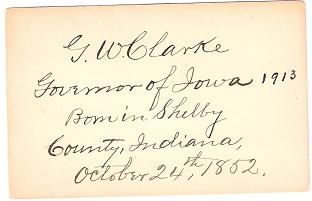 G. W. Clarke
Governor of Iowa 1913
Born in Shelby
County, Indiana,
October 24th, 1852.